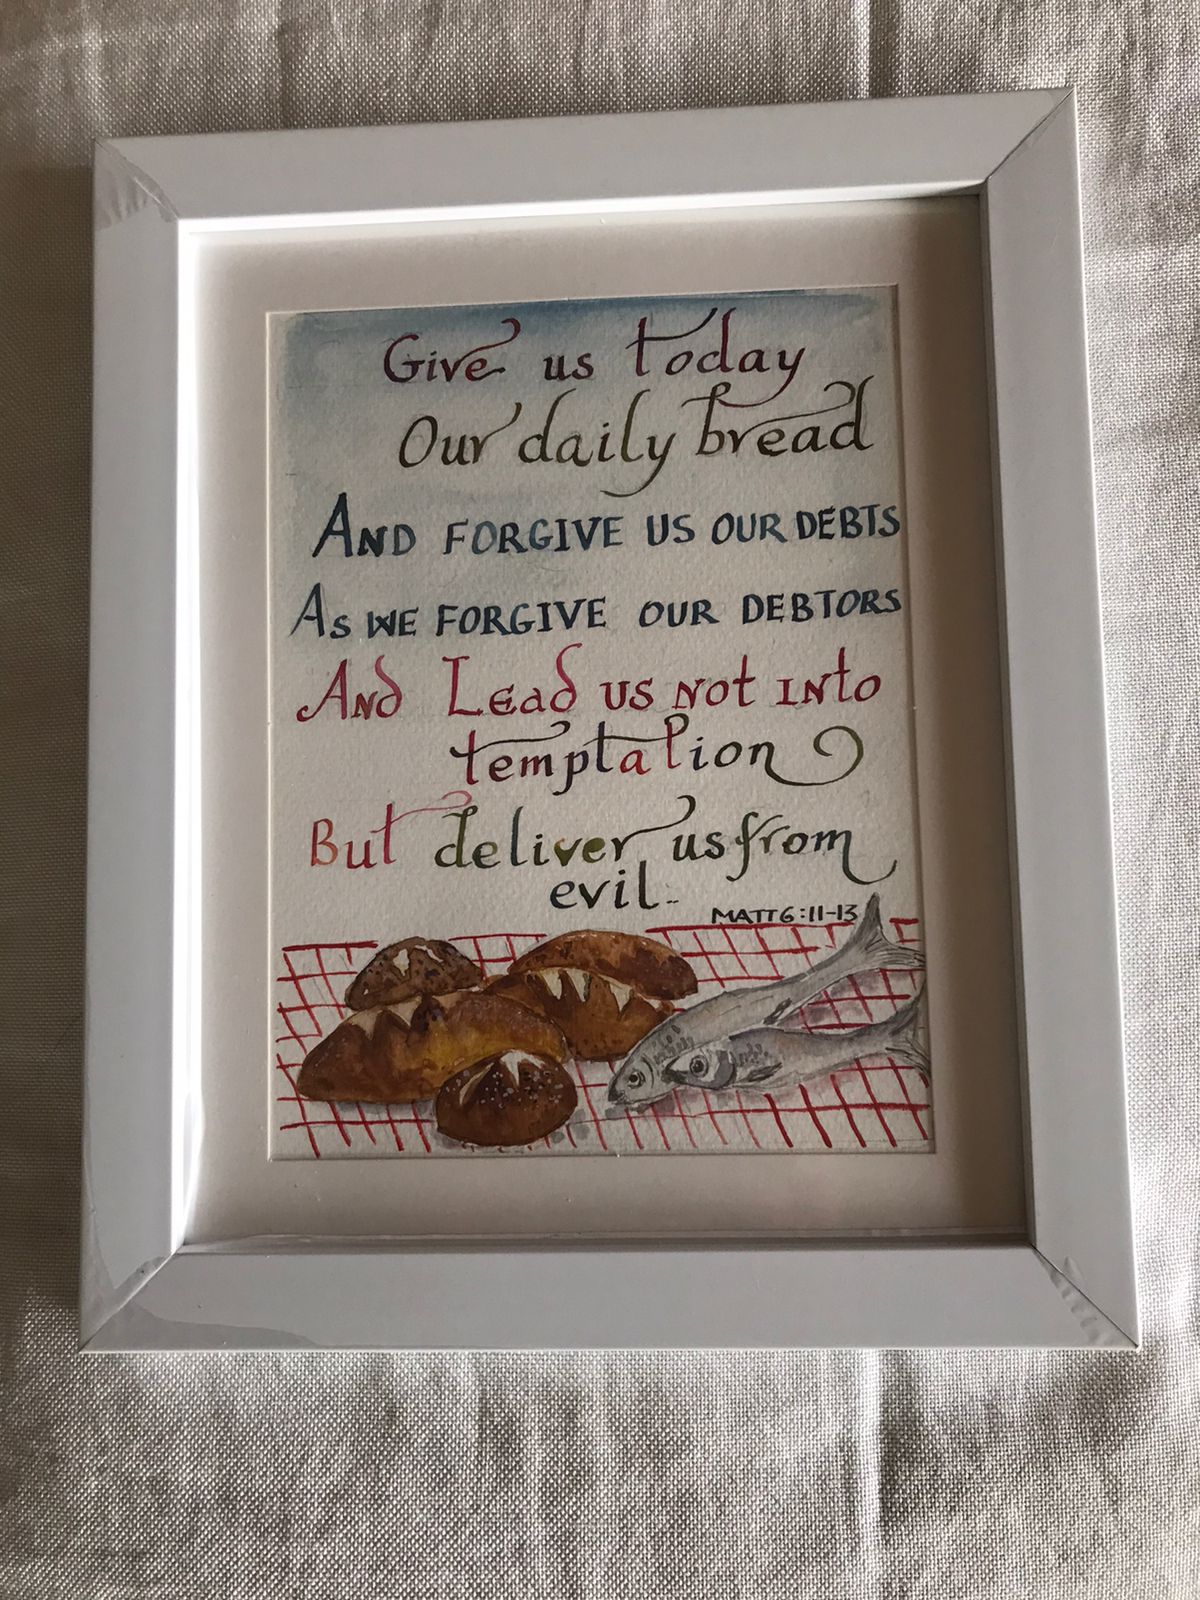 Give us today
Our daily bread
AND FORGIVE US OUR DEBTS
AS WE FORGIVE OUR DEBTORS
And Lead us not into
temptation
But deliver us from
evil.
MATT 6:11-13